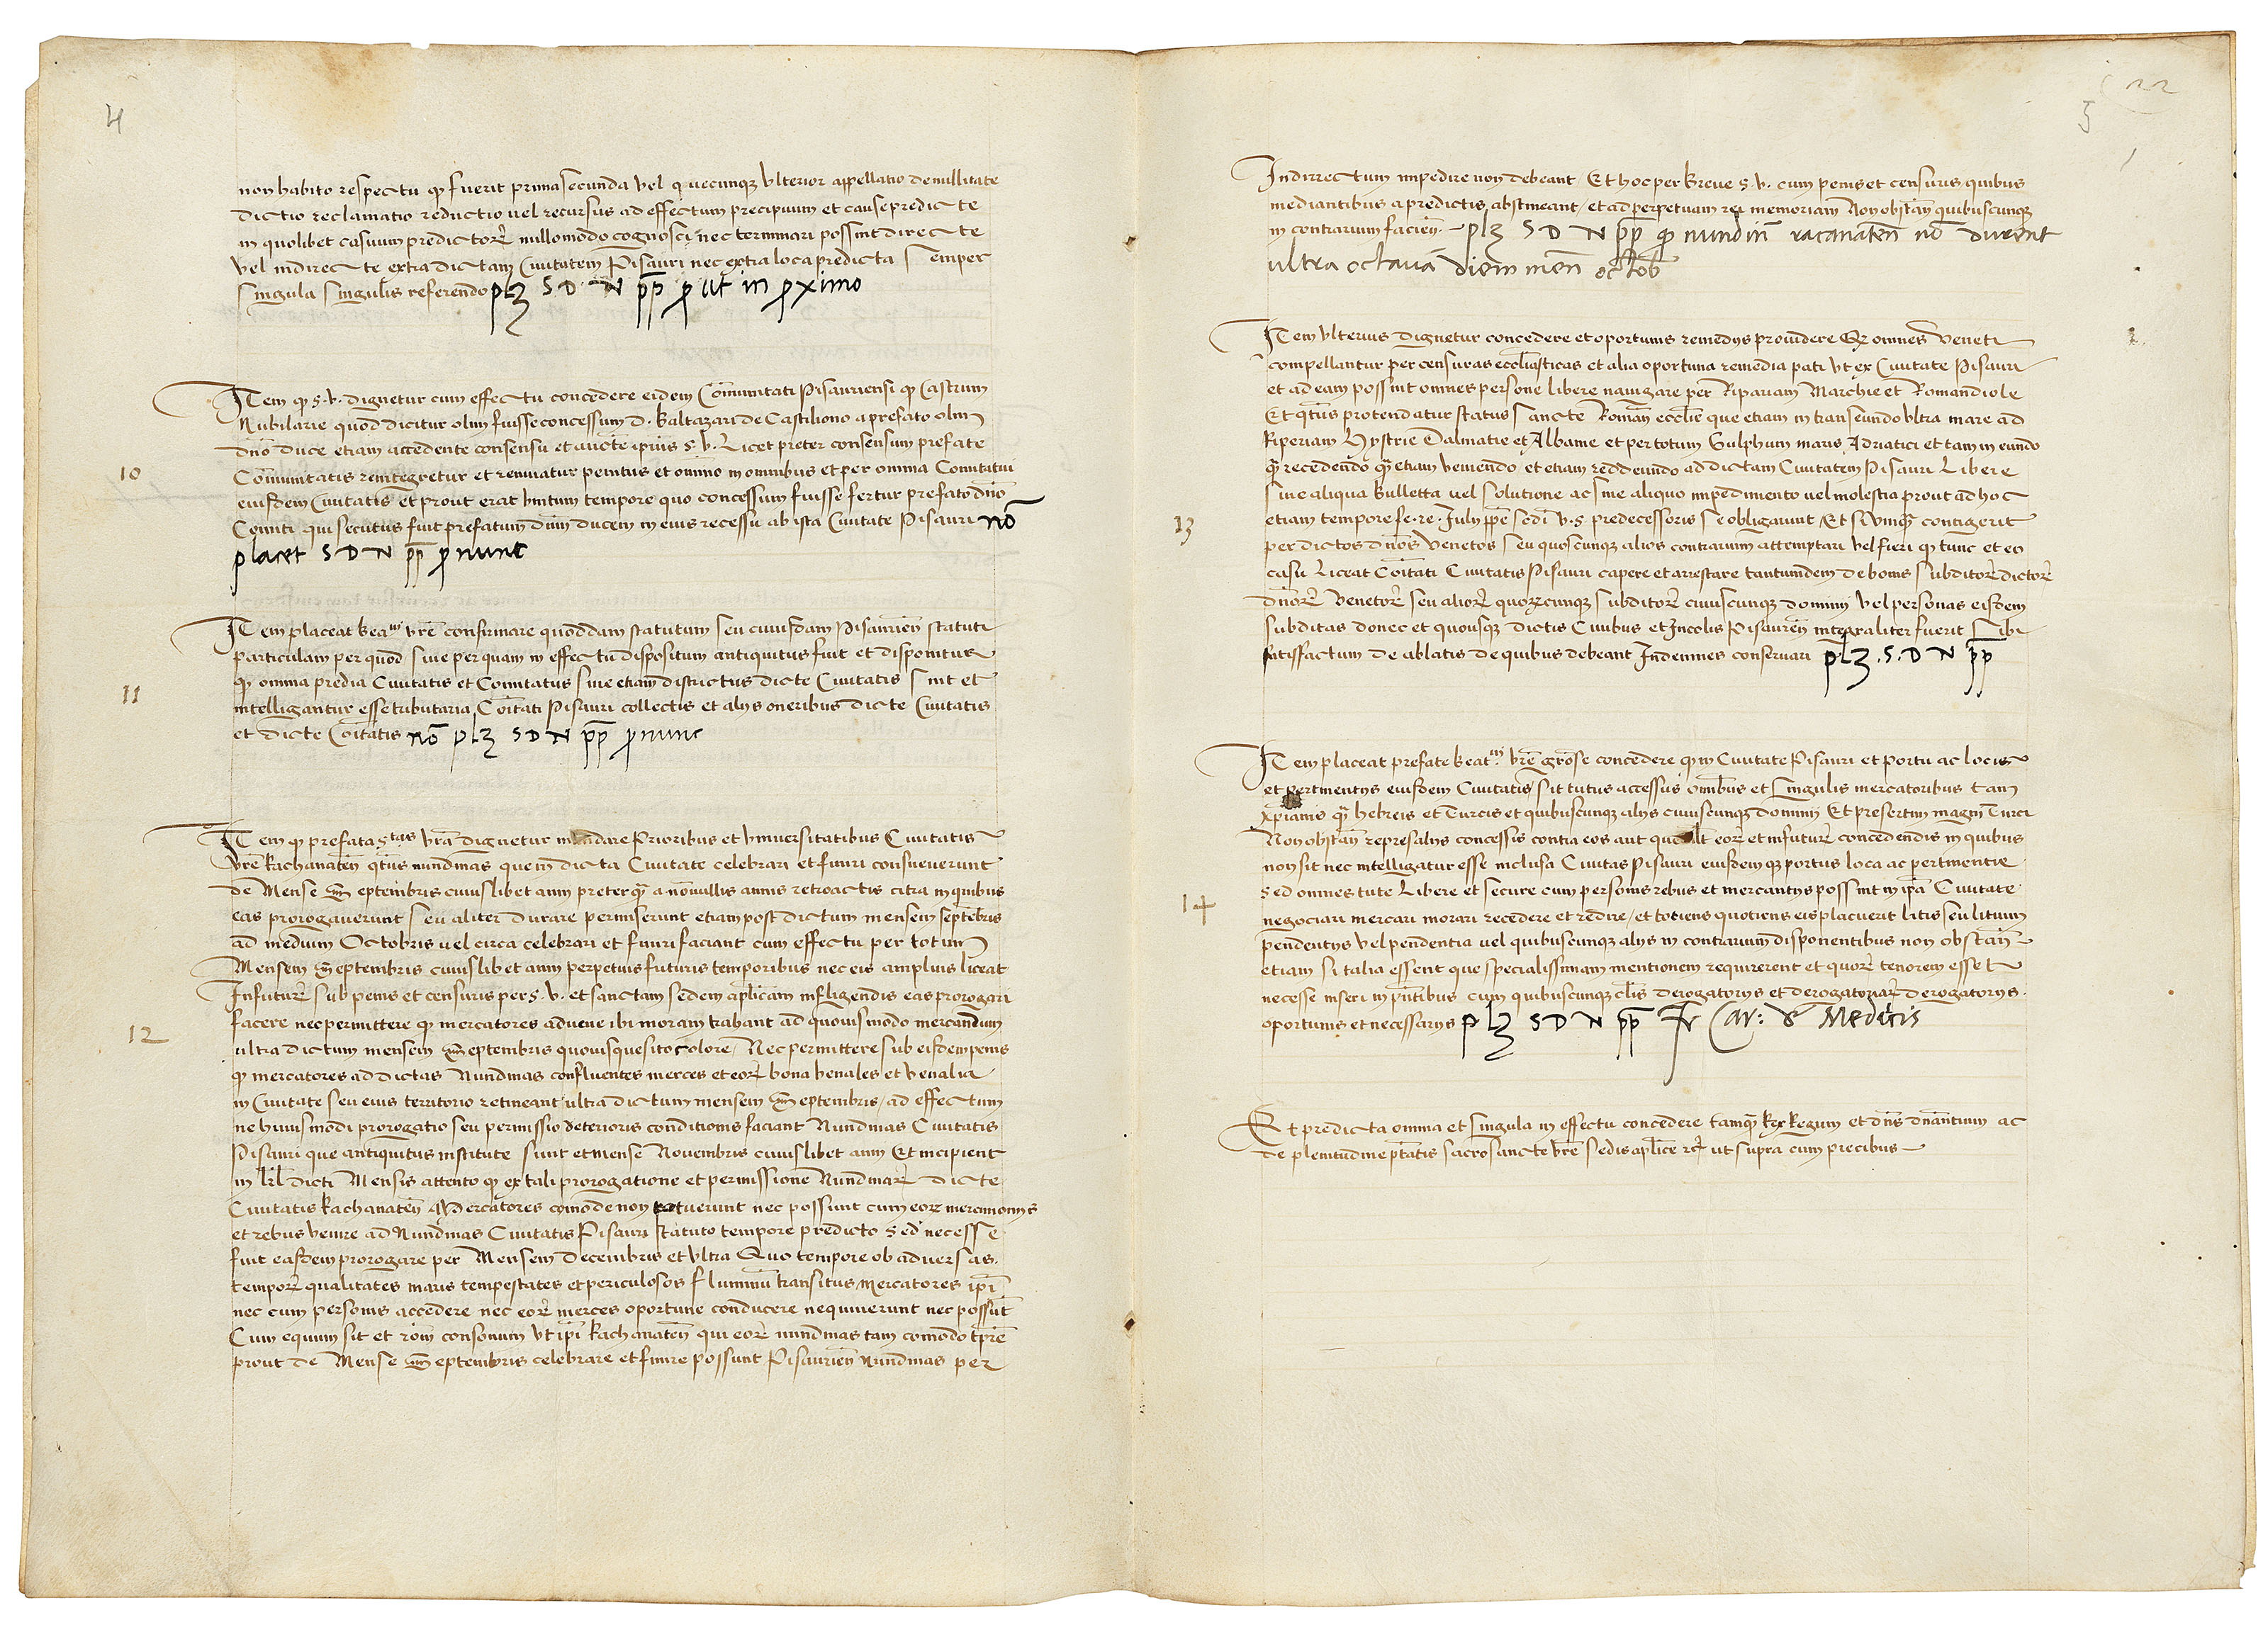 4
non habito respectu q fuerit prima secunda vel quecunqz vlterior appellatio de nullitate
dictio reclamatio reductio vel recursus ad effectum precipuum et cause predicte
in quolibet casuum predictor nullomodo cognosci nec terminari possint directe
vel indirecte extra dictam Civitatem Pisauri nec extra loca predicta Semper
singula singulis referendo plz S D N pp prout in proximo
Item q S. V. dignetur cum effectu concedere eidem Comunitati Pisauriensi q Castrum
Nubilarie quod dicitur olim fuisse concessum d. baltazari de Castiliono a prefato olim
dno duce etiam accedente consensu et aucte ipius S. V. Licet preter consensum prefate
10
Comunitatis reintegretur et reuniatur penitus et omnino in omnibus et per omnia Comitatui
eiusdem Civitatis et prout erat unitum tempore quo concessum fuisse fertur prefato dno
Comiti qui secutus fuit prefatum dum ducem in eius recessu ab ista Civitate Pisauri no
placet S D N pp pro nunc
Item placeat Beati vre confirmare quoddam statutum seu cuiusdam Pisaurien statuti
particulam per quod sive per quam in effectu dispositum antiquitus fuit et disponitur
11
q omnia predia Civitatis et Comitatus sive etiam districtus dicte Civitatis sint et
intelligantur esse tributaria Coitati Pisauri collectis et alijs oneribus dicte Civitatis
et dicte Coitatis no plz S D N pp pro nunc
Item q prefata Stas vra dignetur mandare Prioribus et Vniversitatibus Civitatis
vre Rachanaten qtus nundinas que in dicta Civitate celebrari et finiri consueverunt
de Mense Septembris cuiuslibet anni preterq a nonullis annis retroactis citra in quibus
eas prorogaverunt seu aliter durare permiserunt etiam post dictum mensem septebris
ad medium Octobris vel circa celebrari et finiri faciant cum effectu per totum
Mensem Septembris cuiuslibet anni perpetuis futuris temporibus nec eis amplius liceat
In futur sub penis et censuris per S. V. et sanctam sedem aplicam infligendis eas prorogari
12
facere nec permittere q mercatores advene ibi moram trahant ad quovis modo mercandum
ultra dictum mensem Septembris quovis quesito colore Nec permittere sub eisdem penis
q mercatores ad dictas Nundinas confluentes merces et eor bona venales et venalia
in Civitate seu eius territorio retineant ultra dictum mensem Septembris ad effectum
ne huiusmodi prorogatio seu permissio deterioris conditionis faciant Nundinas Civitatis
Pisauri que antiquitus institute sunt et mense Novembris cuiuslibet anni Et incipient
in kl dicti Mensis attento q ex tali prorogatione et permissione Nundinar dicte
Civitatis Rachanaten Mercatores comode non potuerunt nec possunt cum eor mercimonijs
et rebus venire ad Nundinas Civitatis Pisauri statuto tempore predicto Sed necesse
fuit easdem prorogare per Mensem Decembris et vltra Quo tempore ob adversas
tempor qualitates maris tempestates et periculosos fluminu transitus mercatores ipi
nec cum personis accedere nec eor merces oportune conducere nequiverunt nec possut
Cum equum sit et roni consonum vt ipi Rachanaten qui eor nundinas tam comodo tpre
prout de Mense Septembris celebrare et finire possunt Pisaurien nundinas per
22
5
Indirectum impedire non debeant Et hoc per breve S. V. cum penis et censuris quibus
mediantibus a predictis abstineant et ad perpetuam rei memoriam Non obstan quibuscunqz
in contrarium facien plz S D N pp q nundin racanaten no durent
ultra octava diem men octob
Item vlterius dignetur concedere et oportunis remedijs providere Qz omnes Veneti
compellantur per censuras eccliasticas et alia oportuna remedia pati vt ex Civitate Pisauri
et ad eam possint omnes persone libere navigare per Ripariam Marchie et Romandiole
Et qtus protendatur status Sancte Roman ecclie que etiam in transeundo vltra mare ad
Riperiam Hystrie Dalmatie et Albanie et per totum Gulphum maris Adriatici et tam in eundo
q recedendo q etiam veniendo et etiam reddeundo ad dictam Civitatem Pisauri Libere
sine aliqua bulletta vel solutione ac sine aliquo impedimento vel molestia prout ad hoc
13
etiam tempore fe. re. Julij ppe scdi V. S. predecessoris se obligarunt Et si vnq contigerit
per dictos dnos Venetos seu quoscunqz alios contrarium attemptari vel fieri q tunc et eo
casu Liceat Coitati Civitatis Pisauri capere et arrestare tantumdem de bonis subditor dictor
dnor Venetor seu alior quorcunqz subditor cuiuscunqz dominij vel personas eisdem
subditas donec et quousqz dictis Civibus et Incolis Pisauren integraliter fuerit Sibi
satisfactum de ablatis de quibus debeant Indemnes conservari plz. S. D N pp
Item placeat prefate beatni vre grose concedere q in Civitate Pisauri et portu ac locis
et pertinentijs eiusdem Civitatis sit tutus accessus omibus et singulis mercatoribus tam
xpianis q hebreis et Turcis et quibuscunqz alijs cuiuscunqz dominij Et presertim magni Turci
Non obstan represalijs concessis contra eos aut que eor et in futur concedendis in quibus
non sit nec intelligatur esse inclusa Civitas Pisauri eiusdemqz portus loca ac pertinentie
Sed omnes tute Libere et secure cum personis rebus et mercantijs possint in ipa Civitate
14
negociari mercari morari recedere et redire et totiens quotiens eis placuerit litis seu litium
pendentijs vel pendentia vel quibuscunqz alijs in contrarium disponentibus non obstan
etiam si talia essent que specialissimam mentionem requirerent et quor tenorem esset
necesse inseri in pntibus cum quibuscunqz clis derogatorijs et derogatoriar derogatorijs
oportunis et necessarijs plz S D N pp Jr Car: de Medicis
Et predicta omnia et singula in effectu concedere tamq Rex Regum et dns dnantium ac
de plenitudine ptatis sacrosancte vre Sedis aplice rc ut supra cum precibus